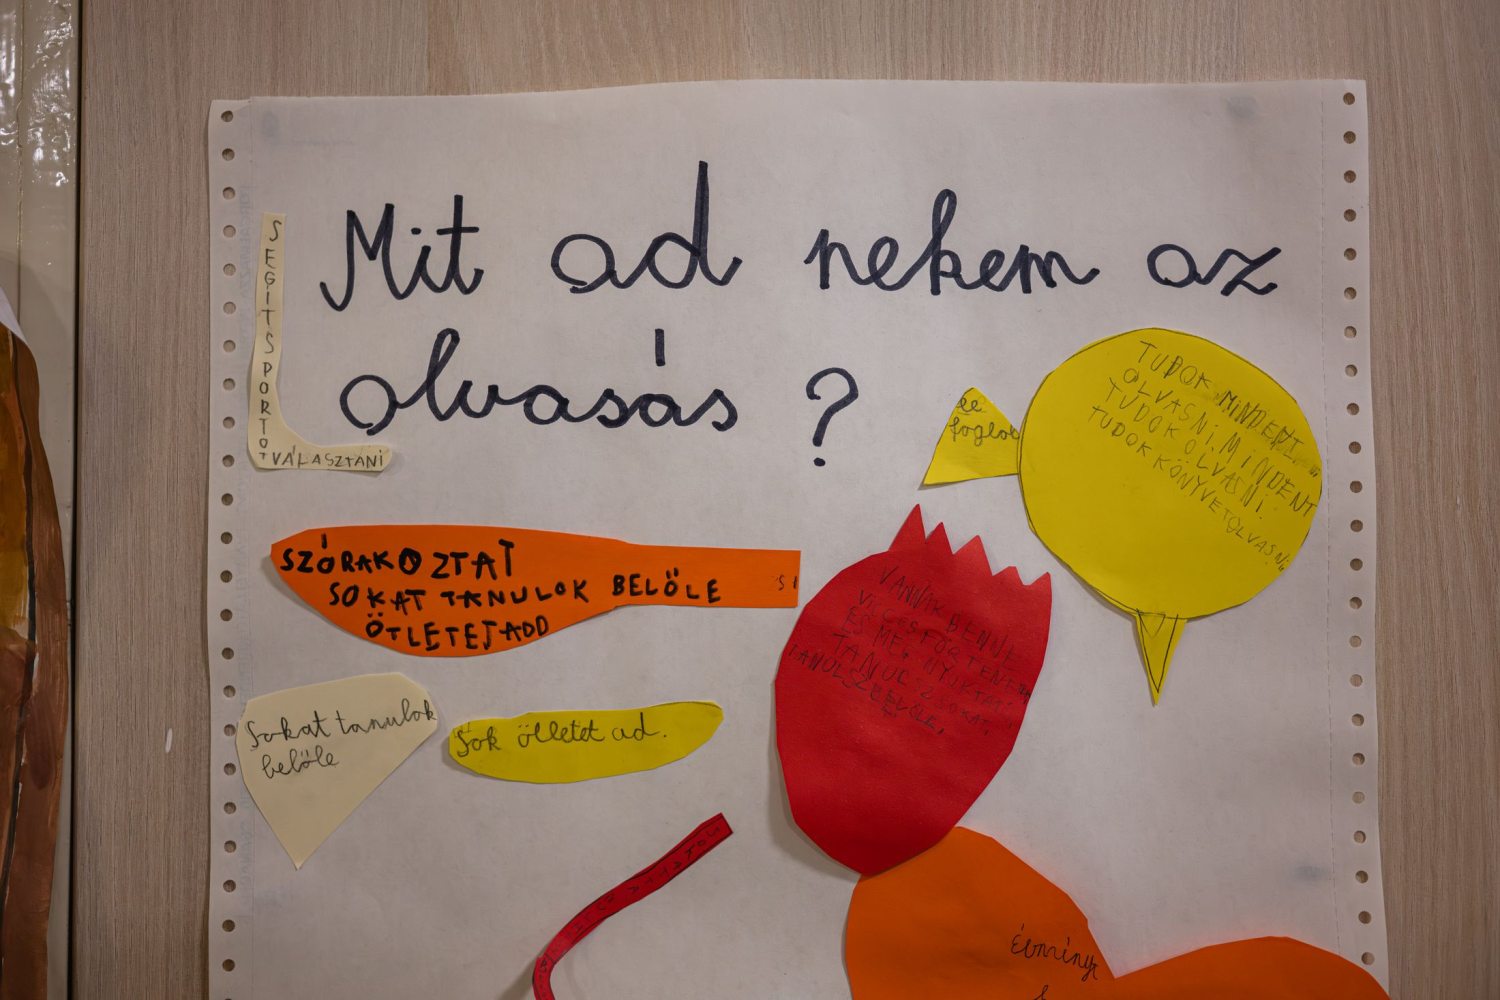 Mit ad nekem az
olvasás ?
SEGITSPORTOT
VÁLASZTANI
TUDOK MINDENT
OLVASNI MINDENT
TUDOK OLVASNI.
TUDOK KÖNYVETOLVASNI
le
foglal
SZÓRAKOZTAT
SOKAT TANULOK BELŐLE
ÖTLETETADD
VANNAK BENNE
VICCES TÖRTENETEK
ÉS ME. NYUKTAT.
TANUCSZ SOKAT,
TANOLSZBELŐLE.
Sokat tanulok
belőle
Sok ölletet ad.
évmény